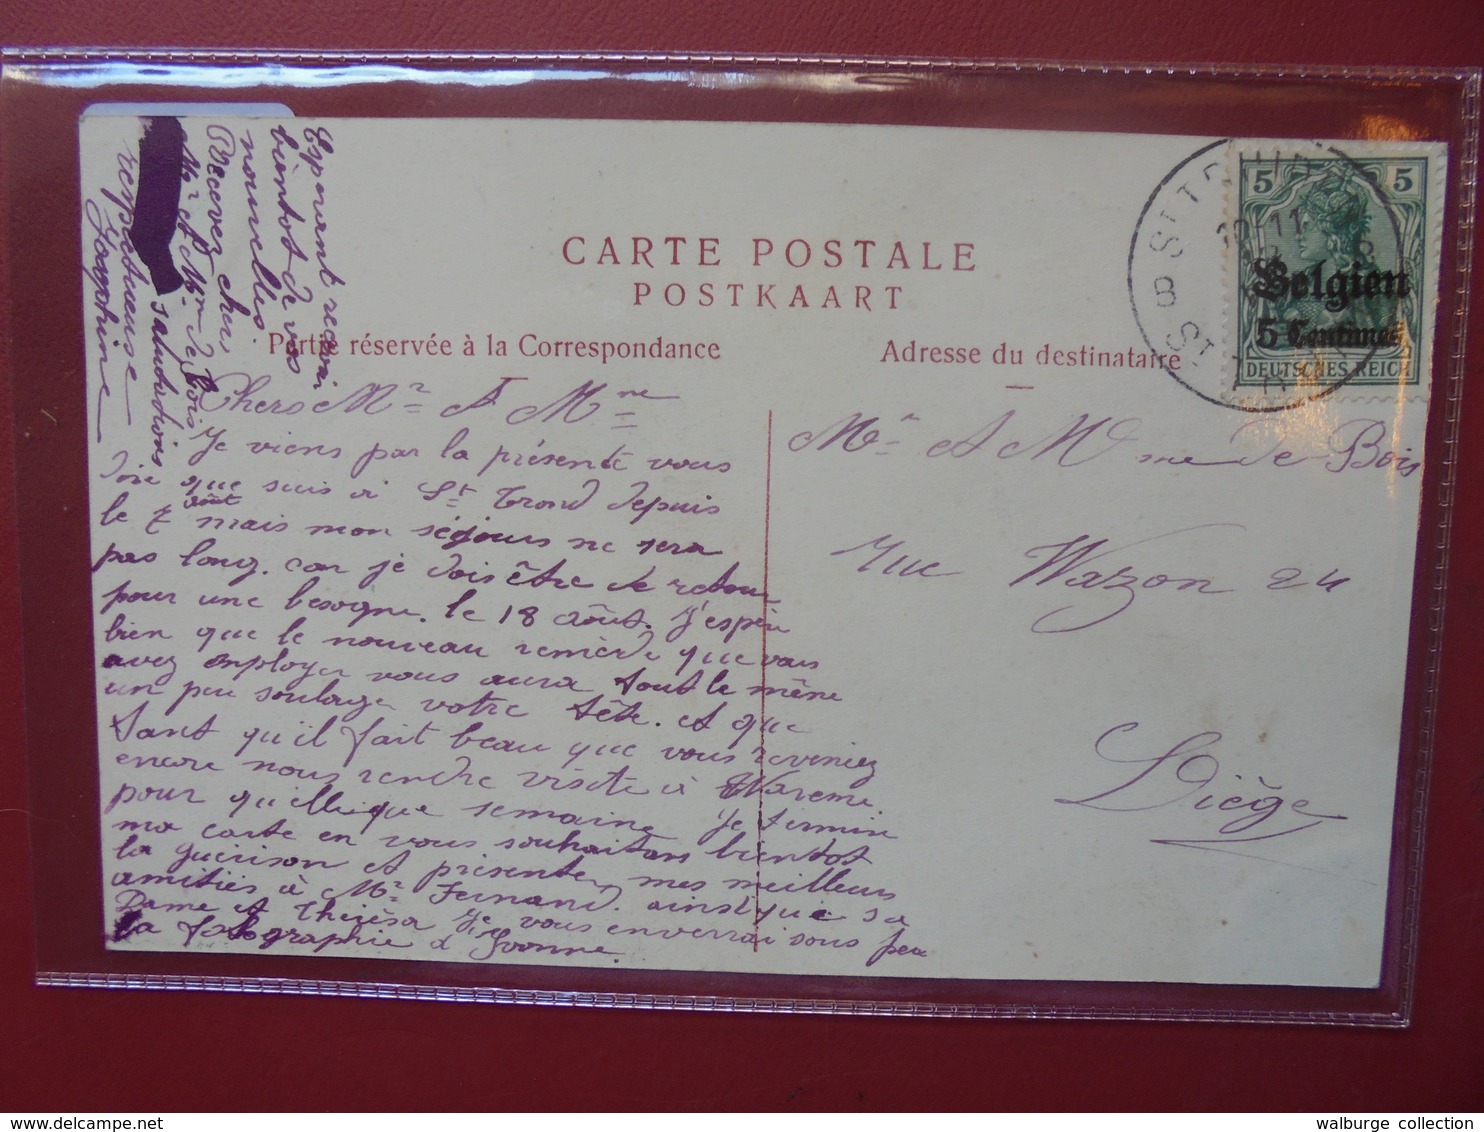 CARTE POSTALE
POSTKAART
Partie réservée à la Correspondance
Adresse du destinataire
5 5
Belgien
5 Centimes
DEUTSCHES REICH
Chers Mr A Mme
Je viens par la présente vous
dire que suis à St Trond depuis
le 7 août mais mon séjours ne sera
pas long. car je dois être de retour
pour une besogne. le 18 août. J'espère
bien que le nouveau remède que vous
avez employer vous aura tout le même
un peu soulager votre tête. et que
tant qu'il fait beau que vous reveniez
encore nous rendre visite à Waremme
pour quellque semaine Je termine
ma carte en vous souhaitans bientot
la guérison et présenter mes meilleurs
amitiés à Mr Fernand. ainsique sa
Dame et Thérèsa Je vous enverrai sous peu
la fotographie d'Yvonne.
Esperant recevoir
bientot de vos
nouvelles.
Recevez chers
Mr A Mme de Bois
salutations
respectueuse
Josephine
Mr A Mme de Bois
rue Wazon 24
Liège
www.delcampe.net
walburge collection